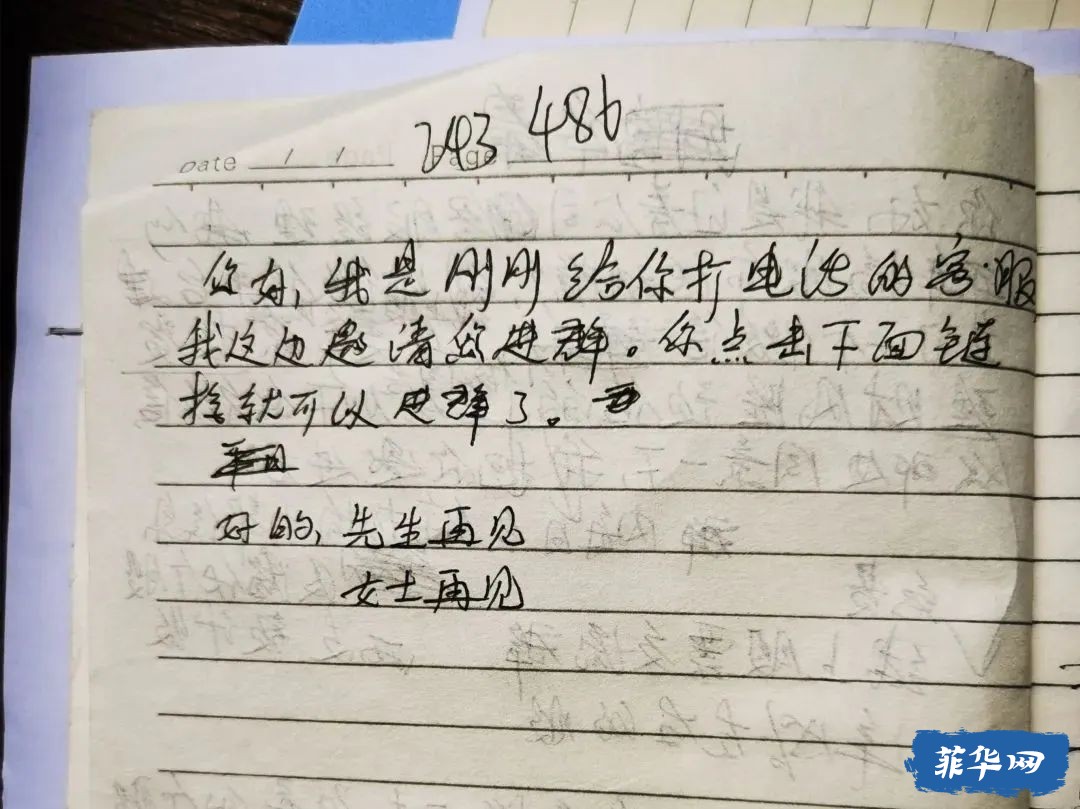 293 486
Date / / Page
你好,我是刚刚给你打电话的客服
我这边邀请您进群。你点击下面链
接就可以进群了。
好的,先生再见
女士再见
菲华网